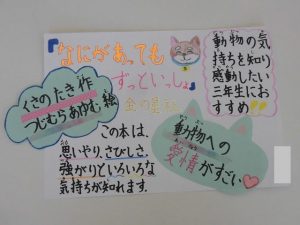 『なにがあっても
ずっといっしょ』
金の星社
くさのたき作
つじむらあゆむ絵
動物の気
持ちを知り
感動したい
三年生にお
すすめ!!
この本は、
思いやり、さびしさ、
強がりといろいろな
気持ちが知れます。
動物への
愛情がすごい♡